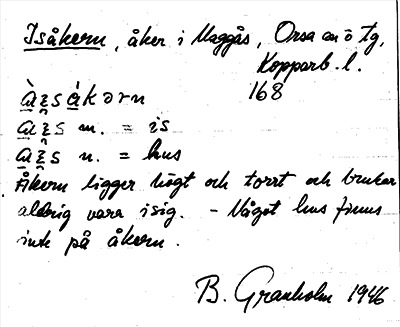 Isåkern, åker i Maggås, Orsa sn ö tg,
Kopparb. l.
168
m. = is
n. = hus
Åkern ligger högt och torrt och brukar
aldrig vara isig. - Något hus finns
inte på åkern.
B. Granholm 1946